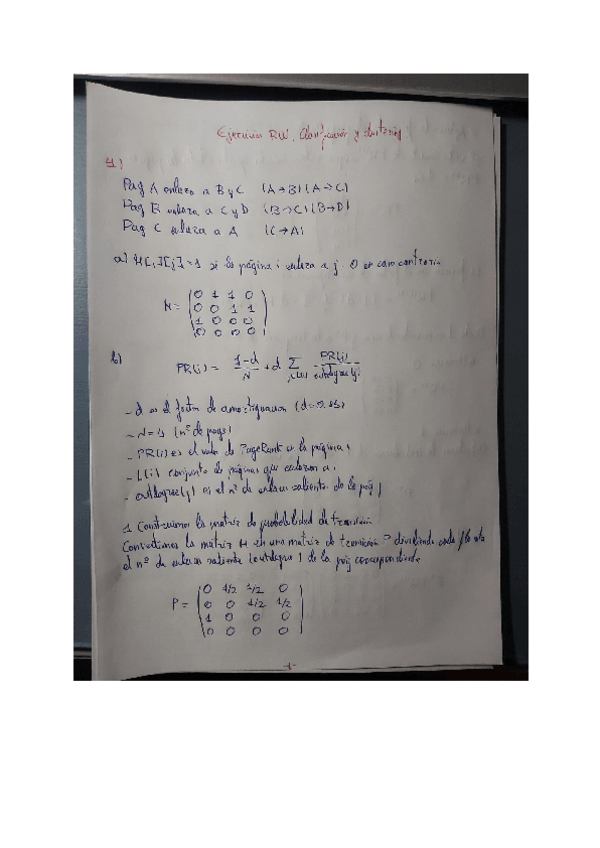 Ejercicios RW, Clasificación y clustering
1)
Pag A enlaza a B y C (A→B) (A→C)
Pag B enlaza a C y D (B→C) (B→D)
Pag C enlaza a A (C→A)
a) H[i][j]=1 si la página i enlaza a j. 0 en caso contrario
H =
0 1 1 0
0 0 1 1
1 0 0 0
0 0 0 0
b) PR(i) = 1-d / N + d Σ j∈L(i) PR(j) / outdegree(j)
- d es el factor de amortiguación (d=0.85)
- N= (nº de pags)
- PR(i) es el valor de PageRank de la página i
- L(i) conjunto de páginas que enlazan a i
- outdegree(j) es el nº de enlaces salientes de la pág j
1. Construimos la matriz de probabilidad de transición
Convertimos la matriz H en una matriz de transición P dividiendo cada fila
el nº de enlaces salientes (outdegree) de la pág correspondiente
P =
0 1/2 1/2 0
0 0 1/2 1/2
1 0 0 0
0 0 0 0
-1-